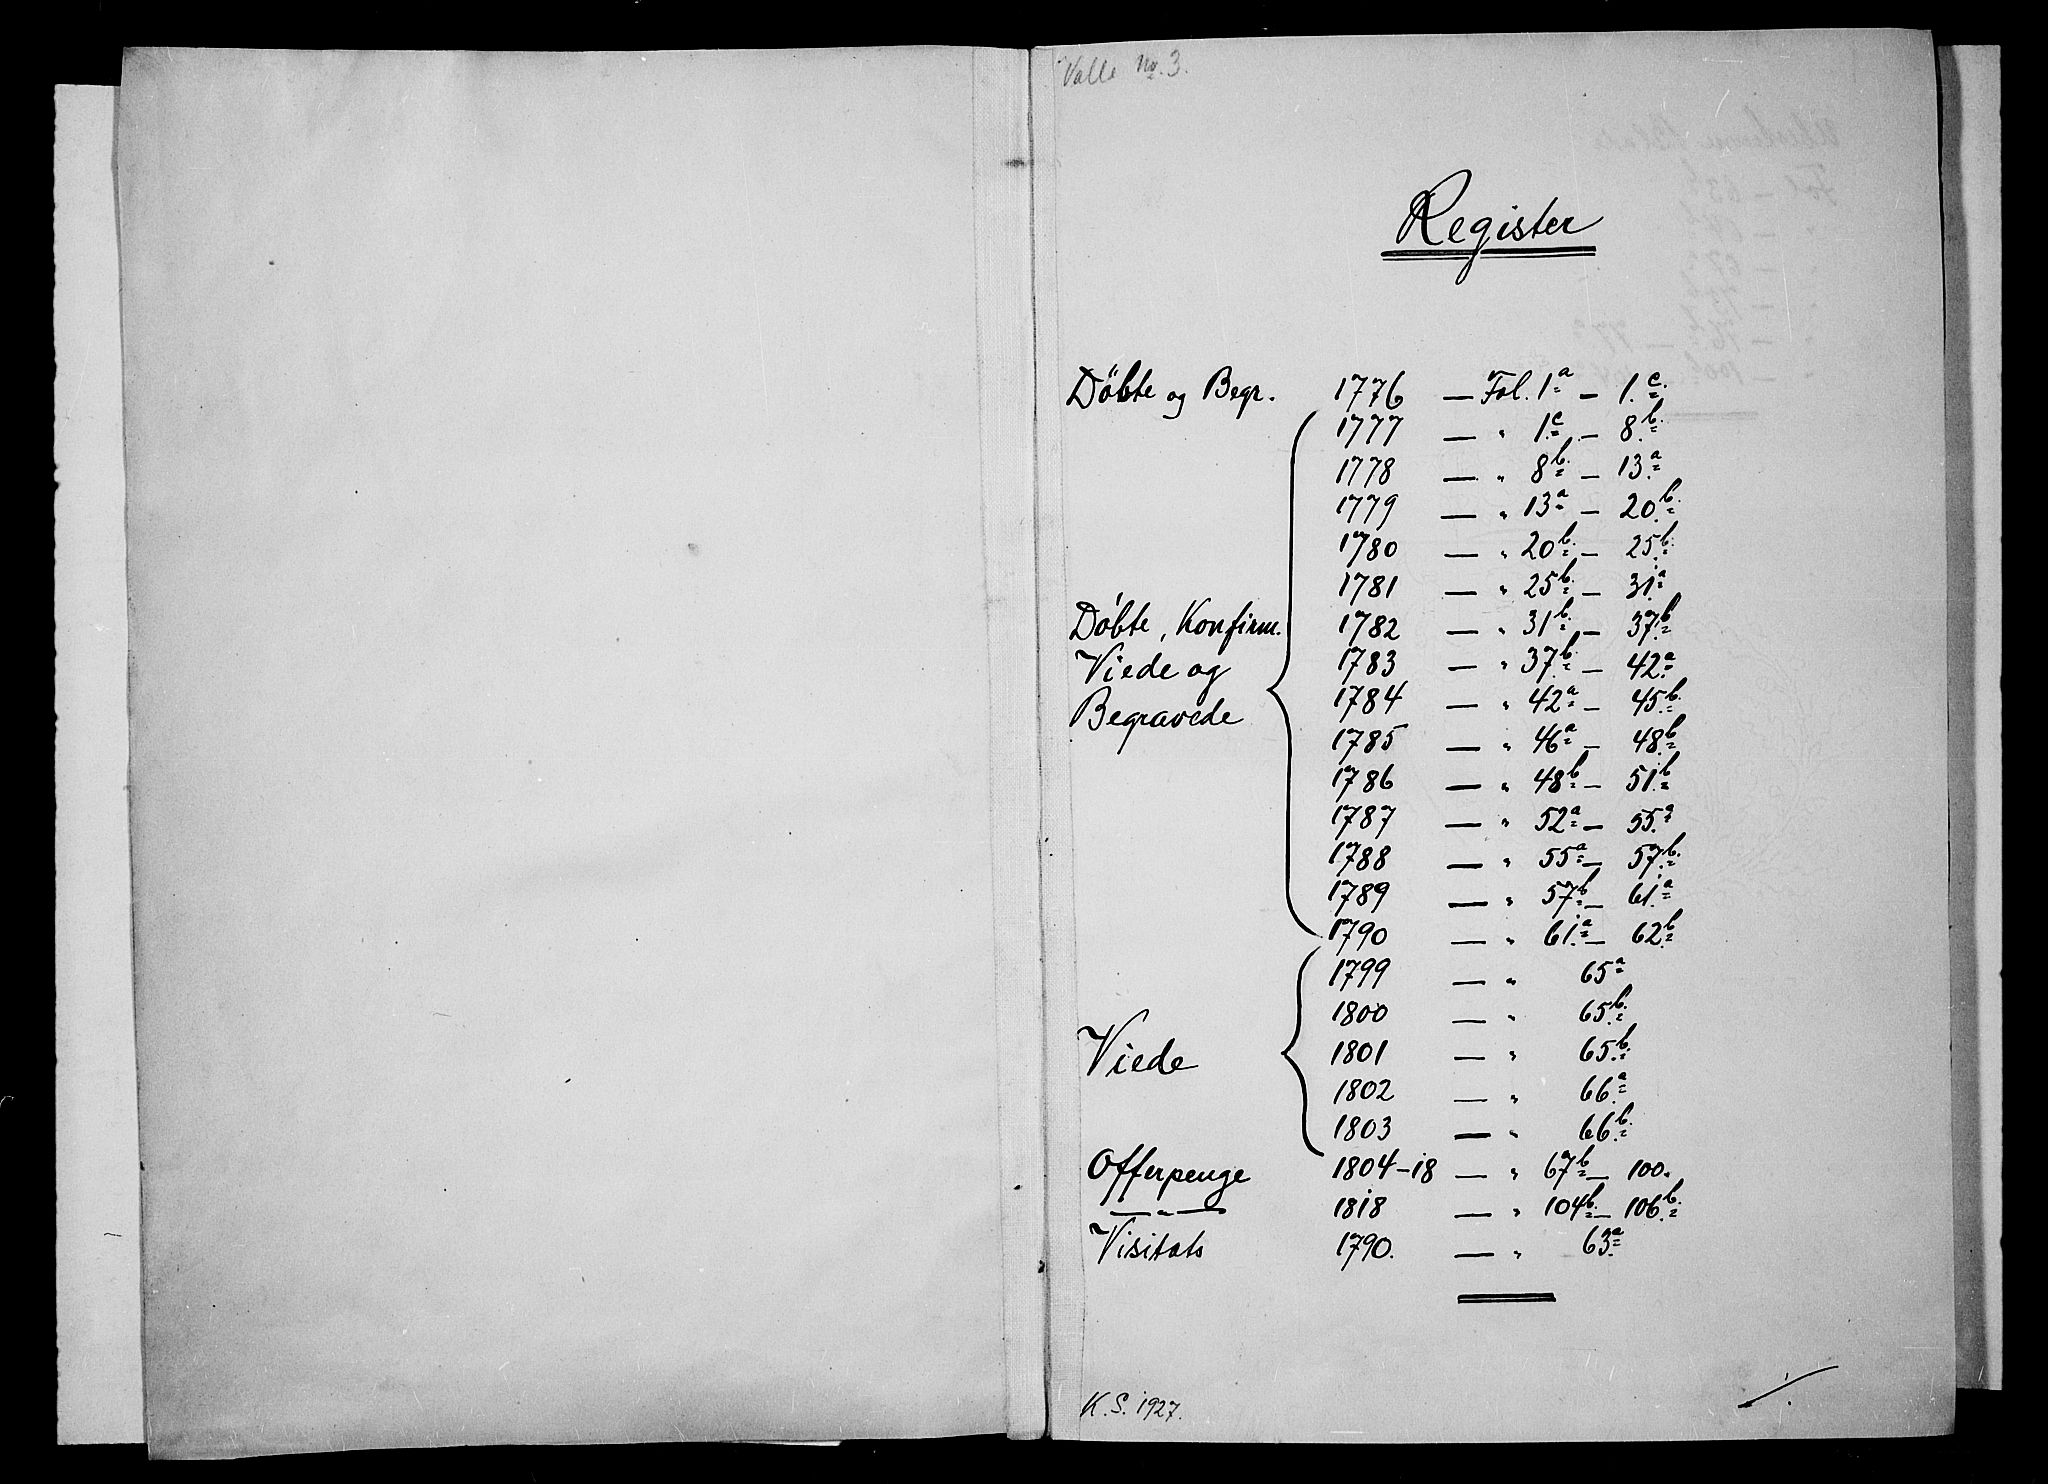 Valle No. 3.
Register
Döbte og Begr. 1776 — Fol. 1a — 1.c.
1777 — " 1.c — 8.b.
1778 — " 8b. — 13.a
1779 — " 13a — 20.b.
1780 — " 20b. — 25.b.
1781 — " 25b. — 31.a
Döbte, Konfirm. 1782 — " 31b. — 37.b
Viede og 1783 — " 37.b — 42.a
1784 — " 42a — 45.b.
Begravede 1785 — " 46a — 48.b
1786 — " 48b — 51.b
1787 — " 52a — 55.a
1788 — " 55a — 57.b.
1789 — " 57b — 61.a
1790 — " 61.a — 62.b
1799 — " 65a
1800 — " 65.b.
Viede 1801 — " 65.b.
1802 — " 66.a
1803 — " 66.b.
Offerpenge 1804-18 — " 67b — 100.
— " — 1818 — " 104b. — 106.b.
Visitats 1790. — " 63.a
K. S. 1927.